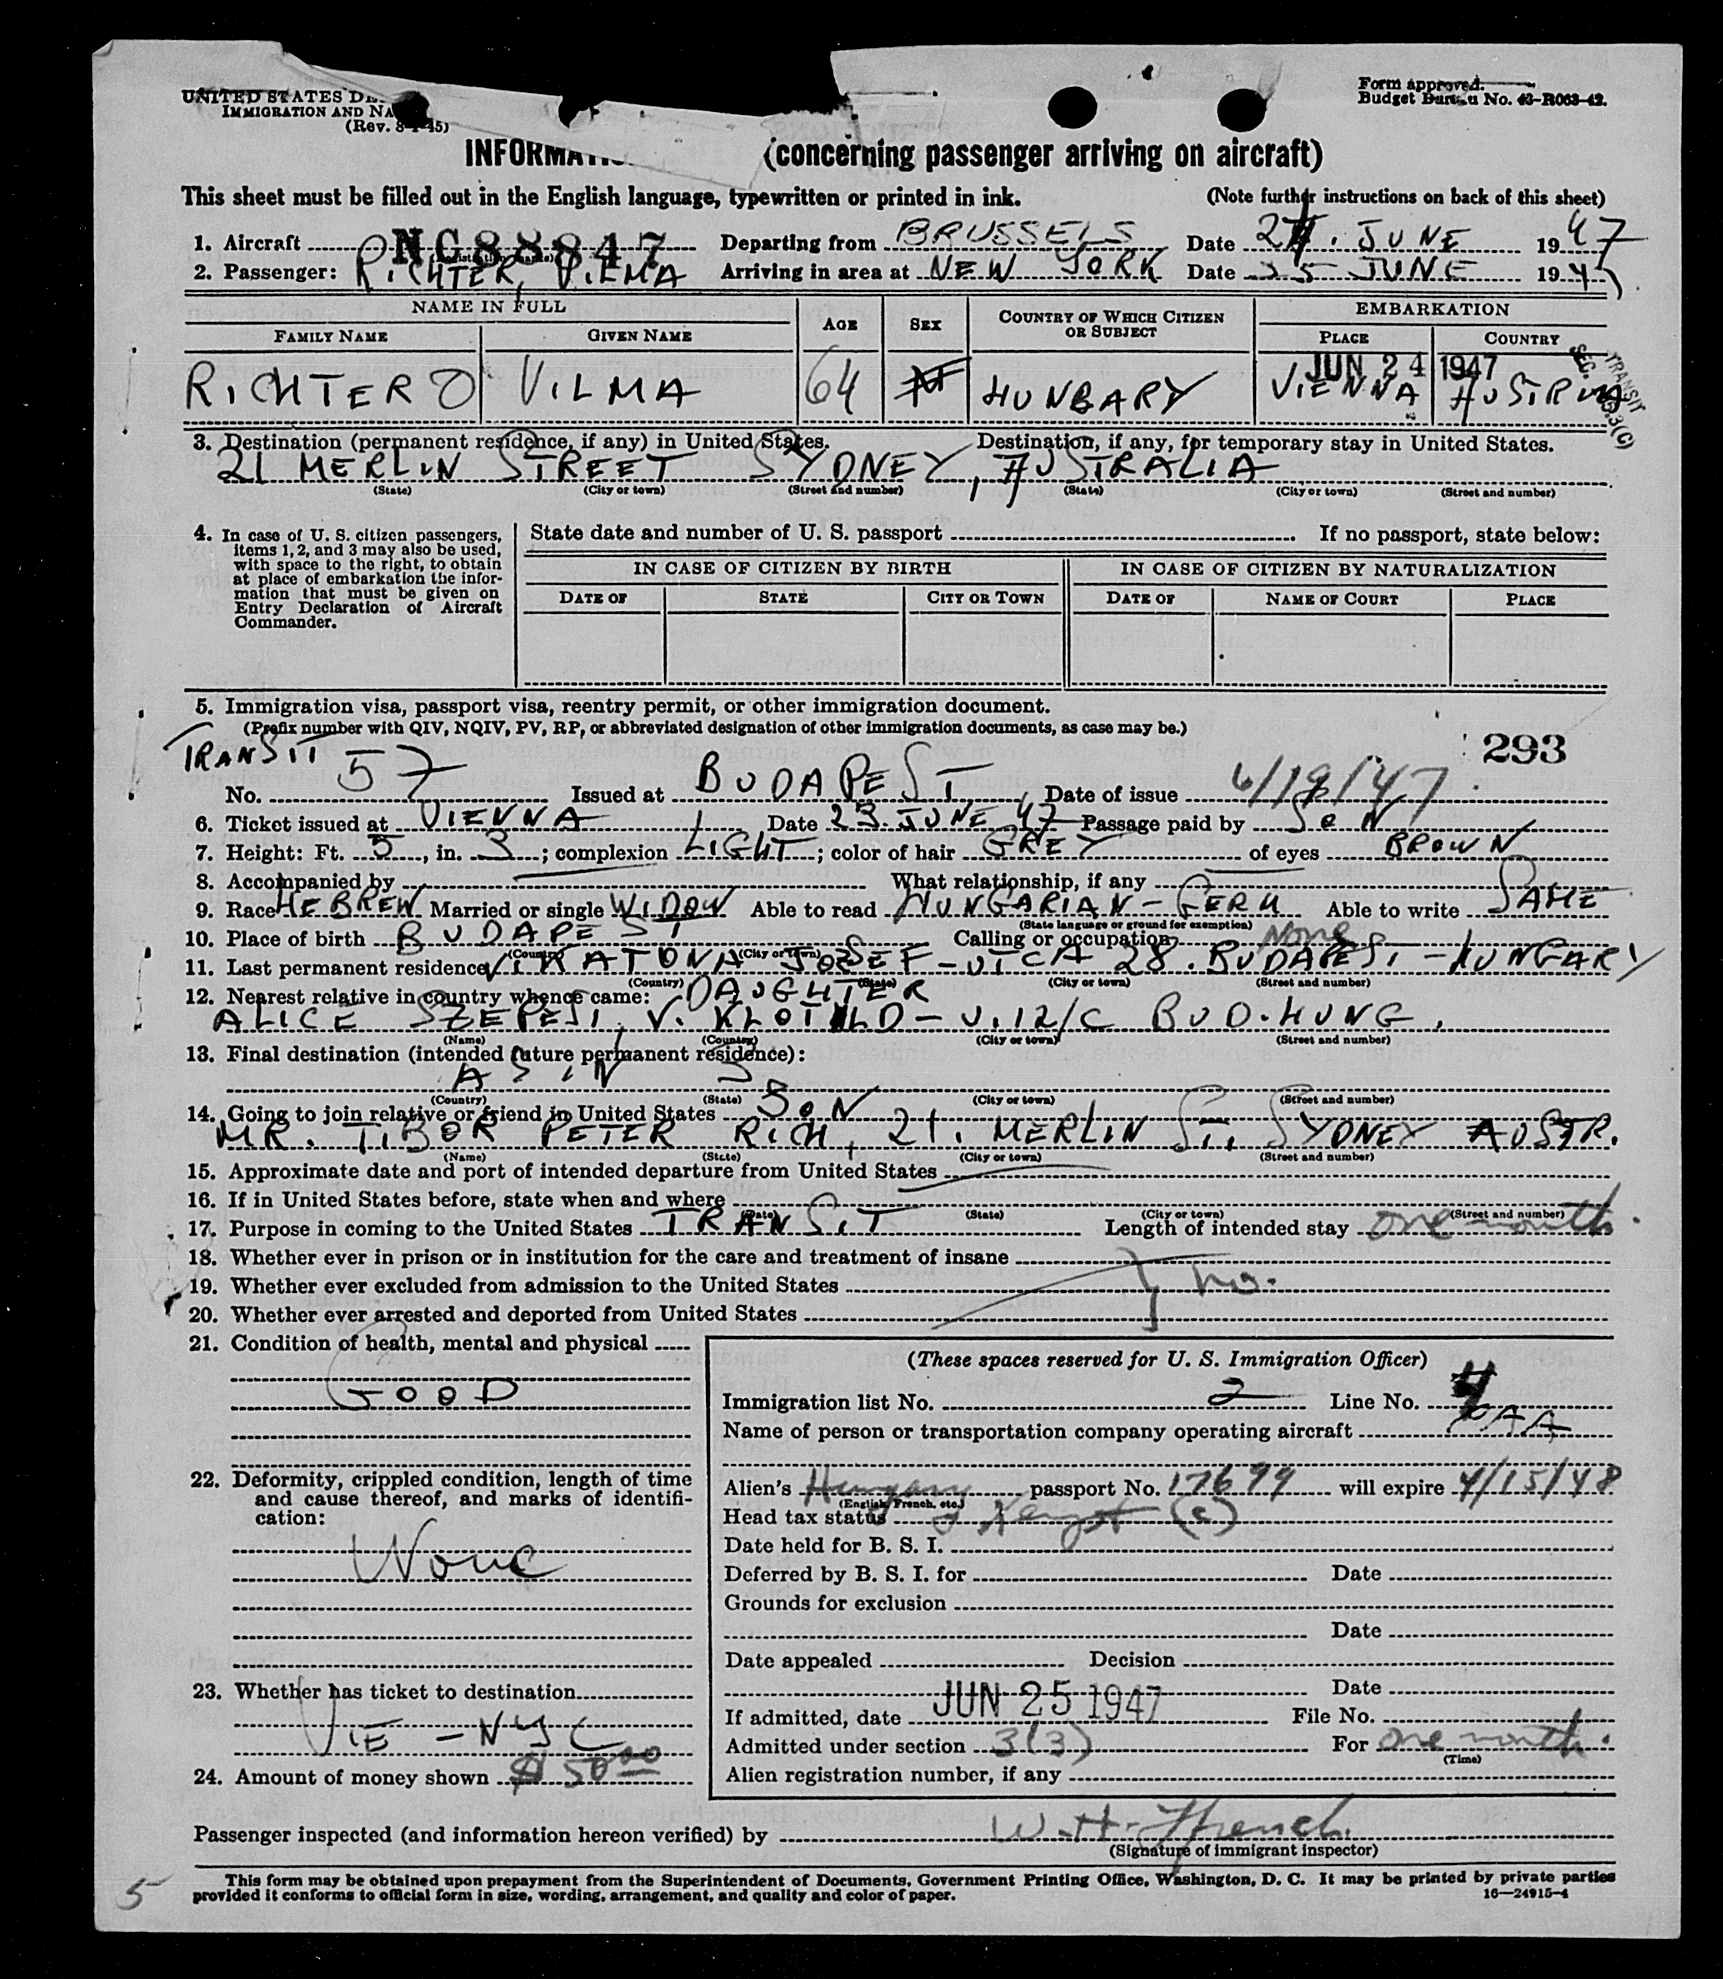 UNITED STATES
IMMIGRATION AND NA
(Rev. 8-1-45)
Form approved.
Budget Bureau No. 43-R063-42.
INFORMATI (concerning passenger arriving on aircraft)
This sheet must be filled out in the English language, typewritten or printed in ink. (Note further instructions on back of this sheet)
1. Aircraft NC88847 Departing from BRUSSELS Date 24. JUNE 1947
2. Passenger: RICHTER, VILMA Arriving in area at NEW YORK Date 25 JUNE 1947
NAME IN FULL AGE SEX COUNTRY OF WHICH CITIZEN OR SUBJECT EMBARKATION
FAMILY NAME GIVEN NAME PLACE COUNTRY
JUN 24 1947
TRANSIT
SEC. 3(C)
RICHTER O VILMA 64 HUNGARY VIENNA AUSTRIA
3. Destination (permanent residence, if any) in United States. Destination, if any, for temporary stay in United States.
21 MERLIN STREET SYDNEY, AUSTRALIA
(State) (City or town) (Street and number) (State) (City or town) (Street and number)
4. In case of U. S. citizen passengers, items 1, 2, and 3 may also be used, with space to the right, to obtain at place of embarkation the information that must be given on Entry Declaration of Aircraft Commander.
State date and number of U. S. passport If no passport, state below:
IN CASE OF CITIZEN BY BIRTH IN CASE OF CITIZEN BY NATURALIZATION
DATE OF STATE CITY OR TOWN DATE OF NAME OF COURT PLACE
5. Immigration visa, passport visa, reentry permit, or other immigration document.
(Prefix number with QIV, NQIV, PV, RP, or abbreviated designation of other immigration documents, as case may be.)
293
TRANSIT
No. 57 Issued at BUDAPEST Date of issue 6/19/47
6. Ticket issued at VIENNA Date 23. JUNE 47 Passage paid by SON
7. Height: Ft. 5, in. 3; complexion LIGHT; color of hair GREY of eyes BROWN
8. Accompanied by What relationship, if any
9. Race HEBREW Married or single WIDOW Able to read HUNGARIAN-GERM Able to write SAME
(State language or ground for exemption)
10. Place of birth BUDAPEST Calling or occupation None
(Country) (City or town)
11. Last permanent residence V. KATONA JOSEF-UTCA 28. BUDAPEST-HUNGARY
(Country) (State) (City or town) (Street and number)
12. Nearest relative in country whence came: DAUGHTER
ALICE SZEPESI, V. KLOTILD-U.12/C BUD.HUNG.
(Name) (Country) (City or town) (Street and number)
13. Final destination (intended future permanent residence):
AS IN 3
(Country) (State) (City or town) (Street and number)
14. Going to join relative or friend in United States SON
MR. TIBOR PETER RICH, 21. MERLIN ST. SYDNEY AUSTR.
(Name) (State) (City or town) (Street and number)
15. Approximate date and port of intended departure from United States
16. If in United States before, state when and where
(Date) (State) (City or town) (Street and number)
17. Purpose in coming to the United States TRANSIT Length of intended stay one month.
18. Whether ever in prison or in institution for the care and treatment of insane
19. Whether ever excluded from admission to the United States } no.
20. Whether ever arrested and deported from United States
21. Condition of health, mental and physical
GOOD
22. Deformity, crippled condition, length of time and cause thereof, and marks of identification:
None
23. Whether has ticket to destination
VIE - NYC
24. Amount of money shown $ 50 00
(These spaces reserved for U. S. Immigration Officer)
Immigration list No. 2 Line No. 4
Name of person or transportation company operating aircraft PAA
Alien's Hungary passport No. 17699 will expire 4/15/48
(English, French, etc.)
Head tax status Exempt (c)
Date held for B. S. I.
Deferred by B. S. I. for Date
Grounds for exclusion
Date
Date appealed Decision
Date
If admitted, date JUN 25 1947 File No.
Admitted under section 3(3) For one month.
(Time)
Alien registration number, if any
Passenger inspected (and information hereon verified) by W.H. Ffrench
(Signature of immigrant inspector)
This form may be obtained upon prepayment from the Superintendent of Documents, Government Printing Office, Washington, D. C. It may be printed by private parties
provided it conforms to official form in size, wording, arrangement, and quality and color of paper. 16—24915-4
5